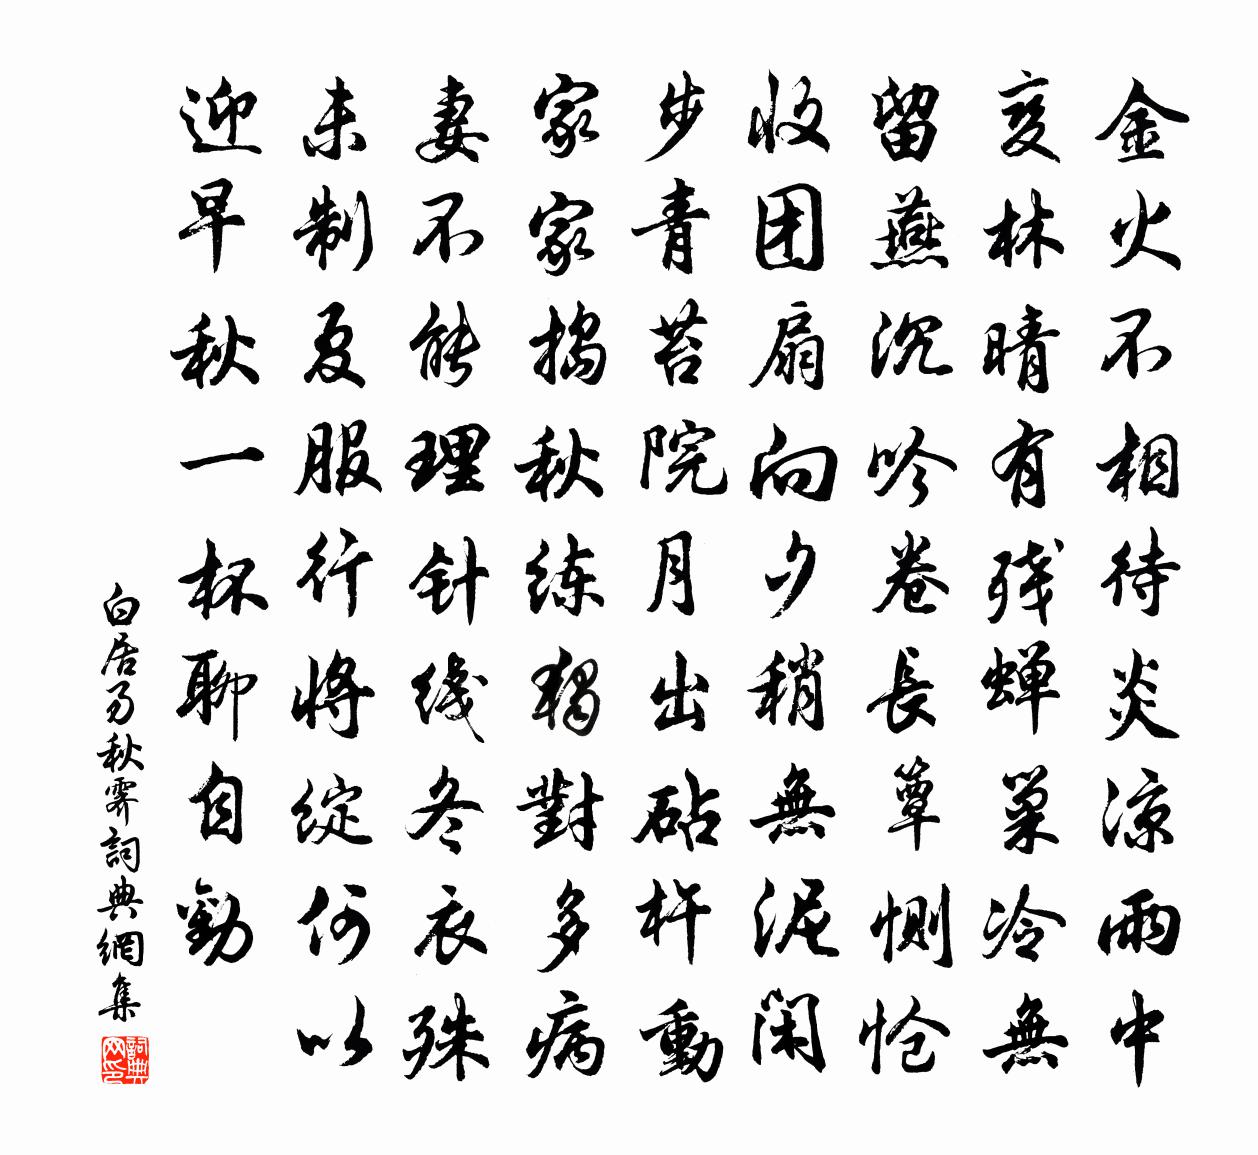 金火不相待炎凉雨中
变林晴有残蝉巢冷無
留燕沉吟卷長簟恻怆
收团扇向夕稍無泥闲
步青苔院月出砧杵動
家家捣秋练独對多病
妻不能理针线冬衣殊
未制夏服行将绽何以
迎早秋一杯聊自勸
白居易秋霁詞典網集
詞典网印